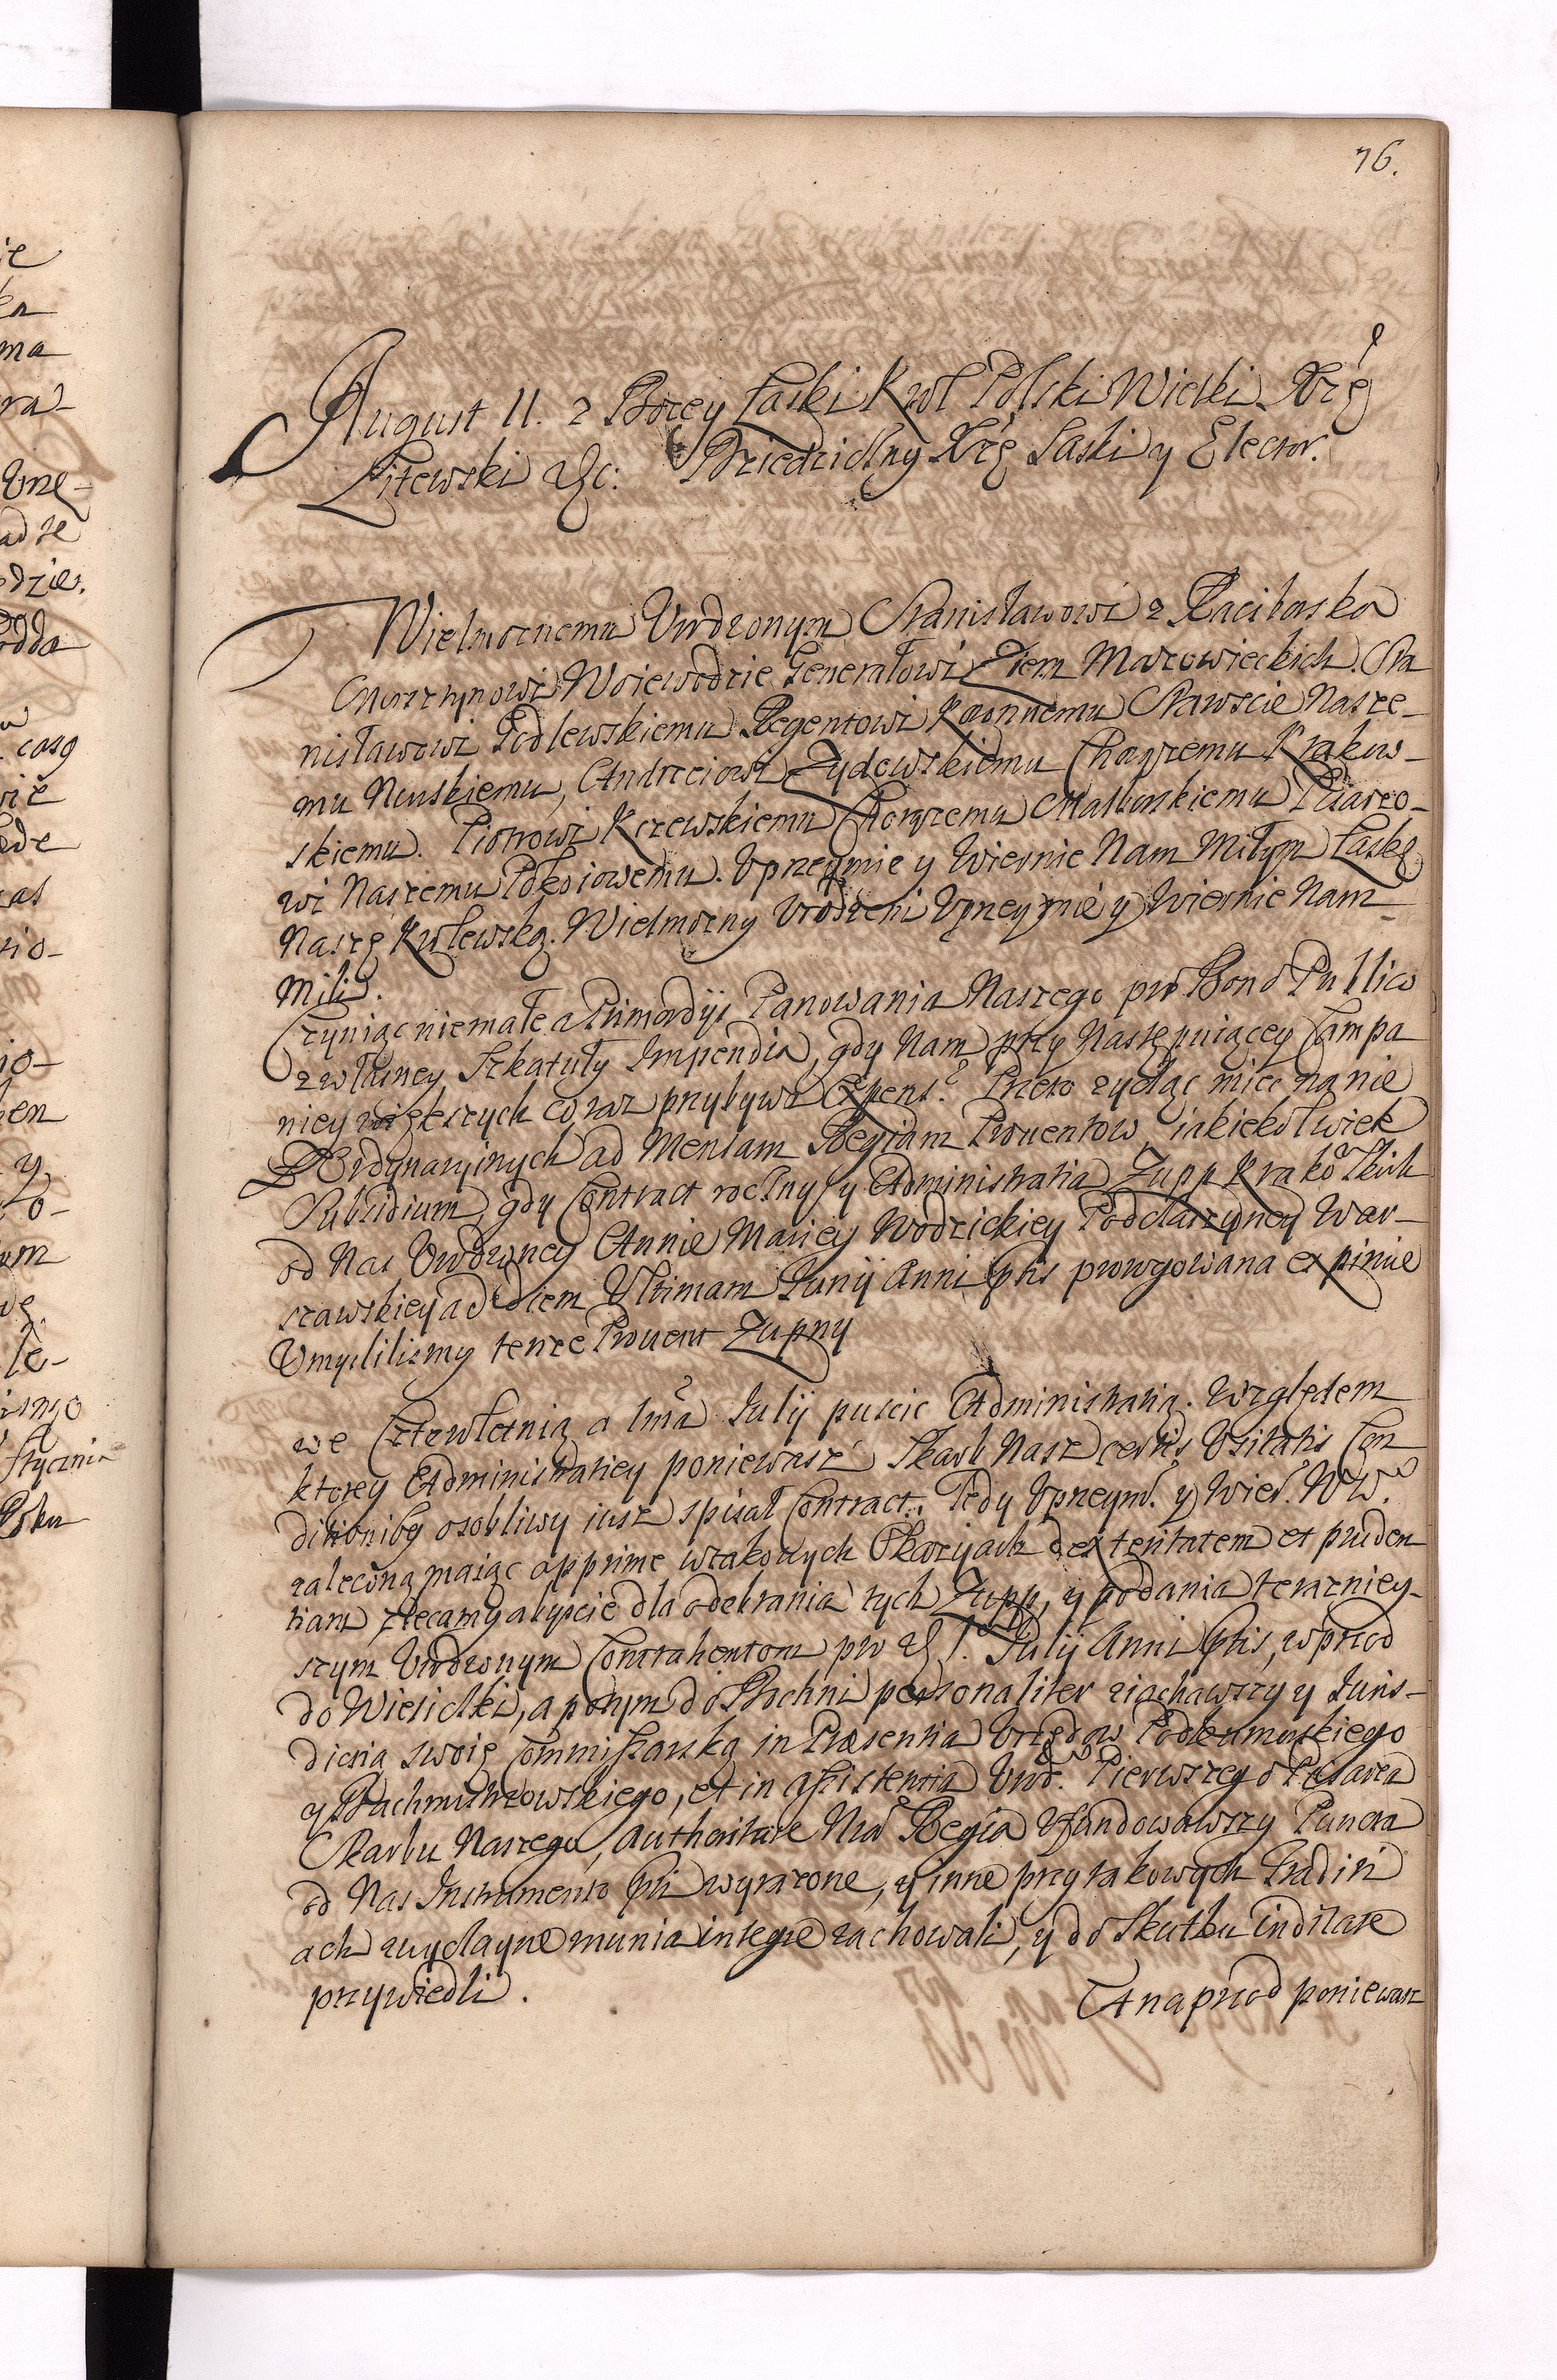 76.
August II. z Bozey Łaski Krol Polski Wielki Xżę
Litewski &c: Dziedziczny Xżę Saski y Elector.
Wielmoznemu Urodzonym Stanisławowi z Raciborska
Morsztynowi Woiewodzie Generałowi Ziem Mazowieckich. Sta
nisławowi Podlewskiemu Regentowi Koronnemu Staroscie Nasze-
mu Nurskiemu, Andrzeiowi Zydowskiemu Chorązemu Krakow-
skiemu. Piotrowi Kczewskiemu Chorązemu Malborskiemu Pisarzo-
wi Naszemu Pokoiowemu. Uprzeymie y Wiernie Nam Miłym Łaskę
Naszę Krolewską. Wielmozny Urodzeni Uprzeymie y Wiernie Nam
Mili.
Czyniąc niemałe a Primordijs Panowania Naszego pro Bono Publico
z własney Szkatuły Impendia, gdy Nam przy Następuiącey Campa
niey większych coraz przybywa Expens? Przeto zycząc miec na nie
z Ordynaryinych ad Mensam Regiam Prouentow, iakiekolwiek
Subsidium, gdy Contract roczny y Administratia Zupp Krako'skich
od Nas Urodzoney Annie Mariey Wodzickiey Podczaszyney War-
szawskiey ad diem Ultimam Junij Anni pntis prorogowana expiruie
Umyslilismy tenze Prouent Zupny
we Czteroletnią a 1ma Julij puscic Administratią. Względem
ktorey Administratiey poniewasz Skarb Nasz certis Usitatis Con
ditionibus osobliwy iusz spisał Contract. Tedy Uprzeym. y Wier. WW.
zaleconą maiąc apprime w takowych Okazyiach dexteritatem et pruden
tiam zlecamy abyscie dla odebrania tych Zupp, y podania terazniey-
szym Urodzonym Contrahentom pro d. 1. Julij Anni pntis, wprzod
do Wieliczki, a potym do Bochni personaliter ziachawszy y Juris-
dictią swoię Commissarską in Præsentia Urzędow Podkomorskiego
y Bachmistrzowskiego, et in assistentia Urod. Pierwszego Pisarza
Skarbu Naszego, Authoritate Nra Regia Ufundowawszy Puncta
od Nas Instrumento pnti wyrazone, y inne przy takowych Traditi
ach zwyczayne munia integre zachowali, y do Skutku indilate
przywiedli.
A naprzod poniewasz